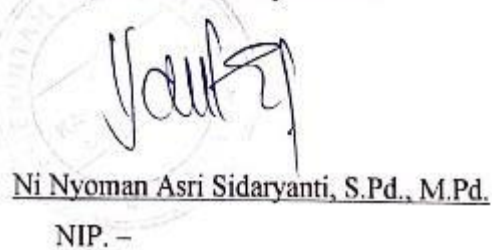 Ni Nyoman Asri Sidaryanti, S.Pd., M.Pd.
NIP. –